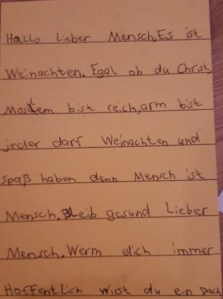 Hallo Lieber Mensch,Es ist
Weinachten. Egal ob du Christ
Moslem bist reich,arm bist
jeder darf Weinachten und
spaß haben denn Mensch ist
Mensch. Bleib gesund Lieber
Mensch. Werm dich immer
Hoffentlich wirst du ein Dach